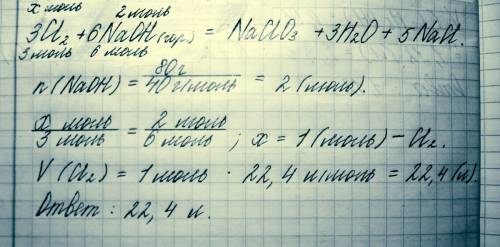 x моль 2 моль
3Cl₂ + 6NaOH (гор.) = NaClO₃ + 3H₂O + 5NaCl.
3 моль 6 моль
n(NaOH) = 80г / 40 г/моль = 2 (моль).
x моль / 3 моль = 2 моль / 6 моль ; x = 1 (моль) – Cl₂.
V(Cl₂) = 1 моль · 22,4 л/моль = 22,4 (л).
Ответ : 22,4 л.